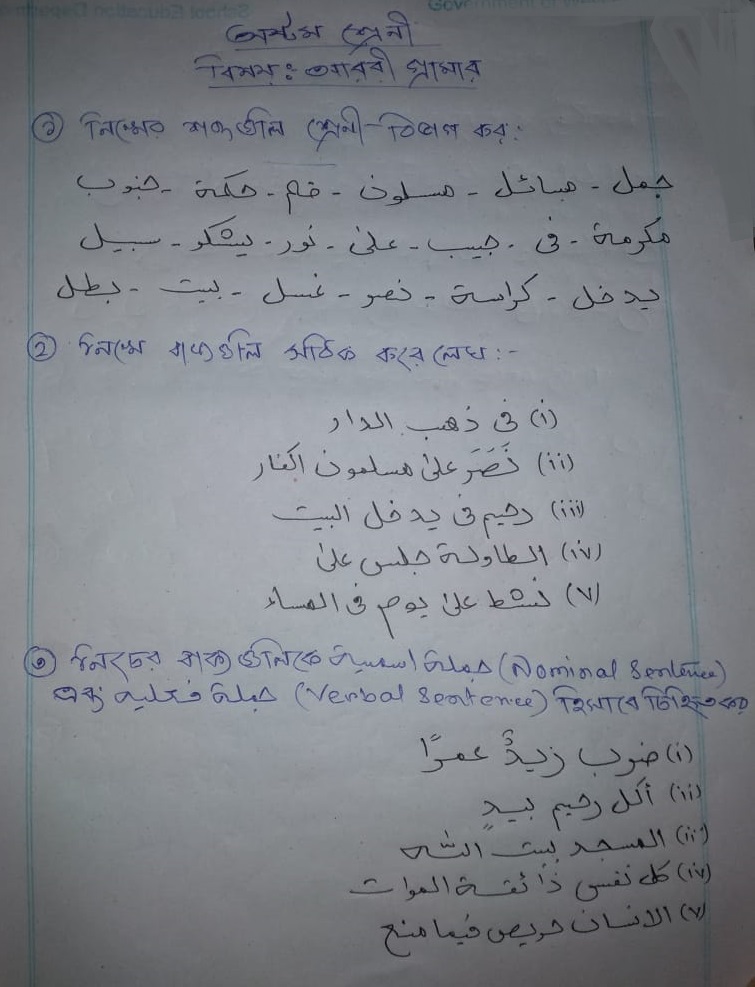 অষ্টম শ্রেনী
বিষয়: আরবী গ্রামার
১) নিম্মের শব্দগুলি শ্রেনী-বিভাগ কর:
جمل - مسائل - مسلون - قلم - حكمة - جنوب
مكرمة - فى - جيب - على - نور - يشكر - سبيل
يدخل - كراسة - نصر - غسل - بيت - بطل
② নিম্মে বাক্যগুলি সঠিক করে লেখ :-
(i) فى ذهب الدار
(ii) نَصَرَ على مسلمون الكفار
(iii) رحيم فى يدخل البيت
(iv) الطاولة جلس على
(v) نشط على يوم فى المساء
৩) নিচের বাক্যগুলিকে جملة اسمية (Nominal Sentence)
এবং جملة فعليه (Verbal Sentence) হিসাবে চিহ্নিত কর
(i) ضرب زيدٌ عمرًا
(ii) أكل رحيم بيدٍ
(iii) المسجد بيت الله
(iv) كل نفس ذائقة الموات
(v) الانسان حريص فيما منع